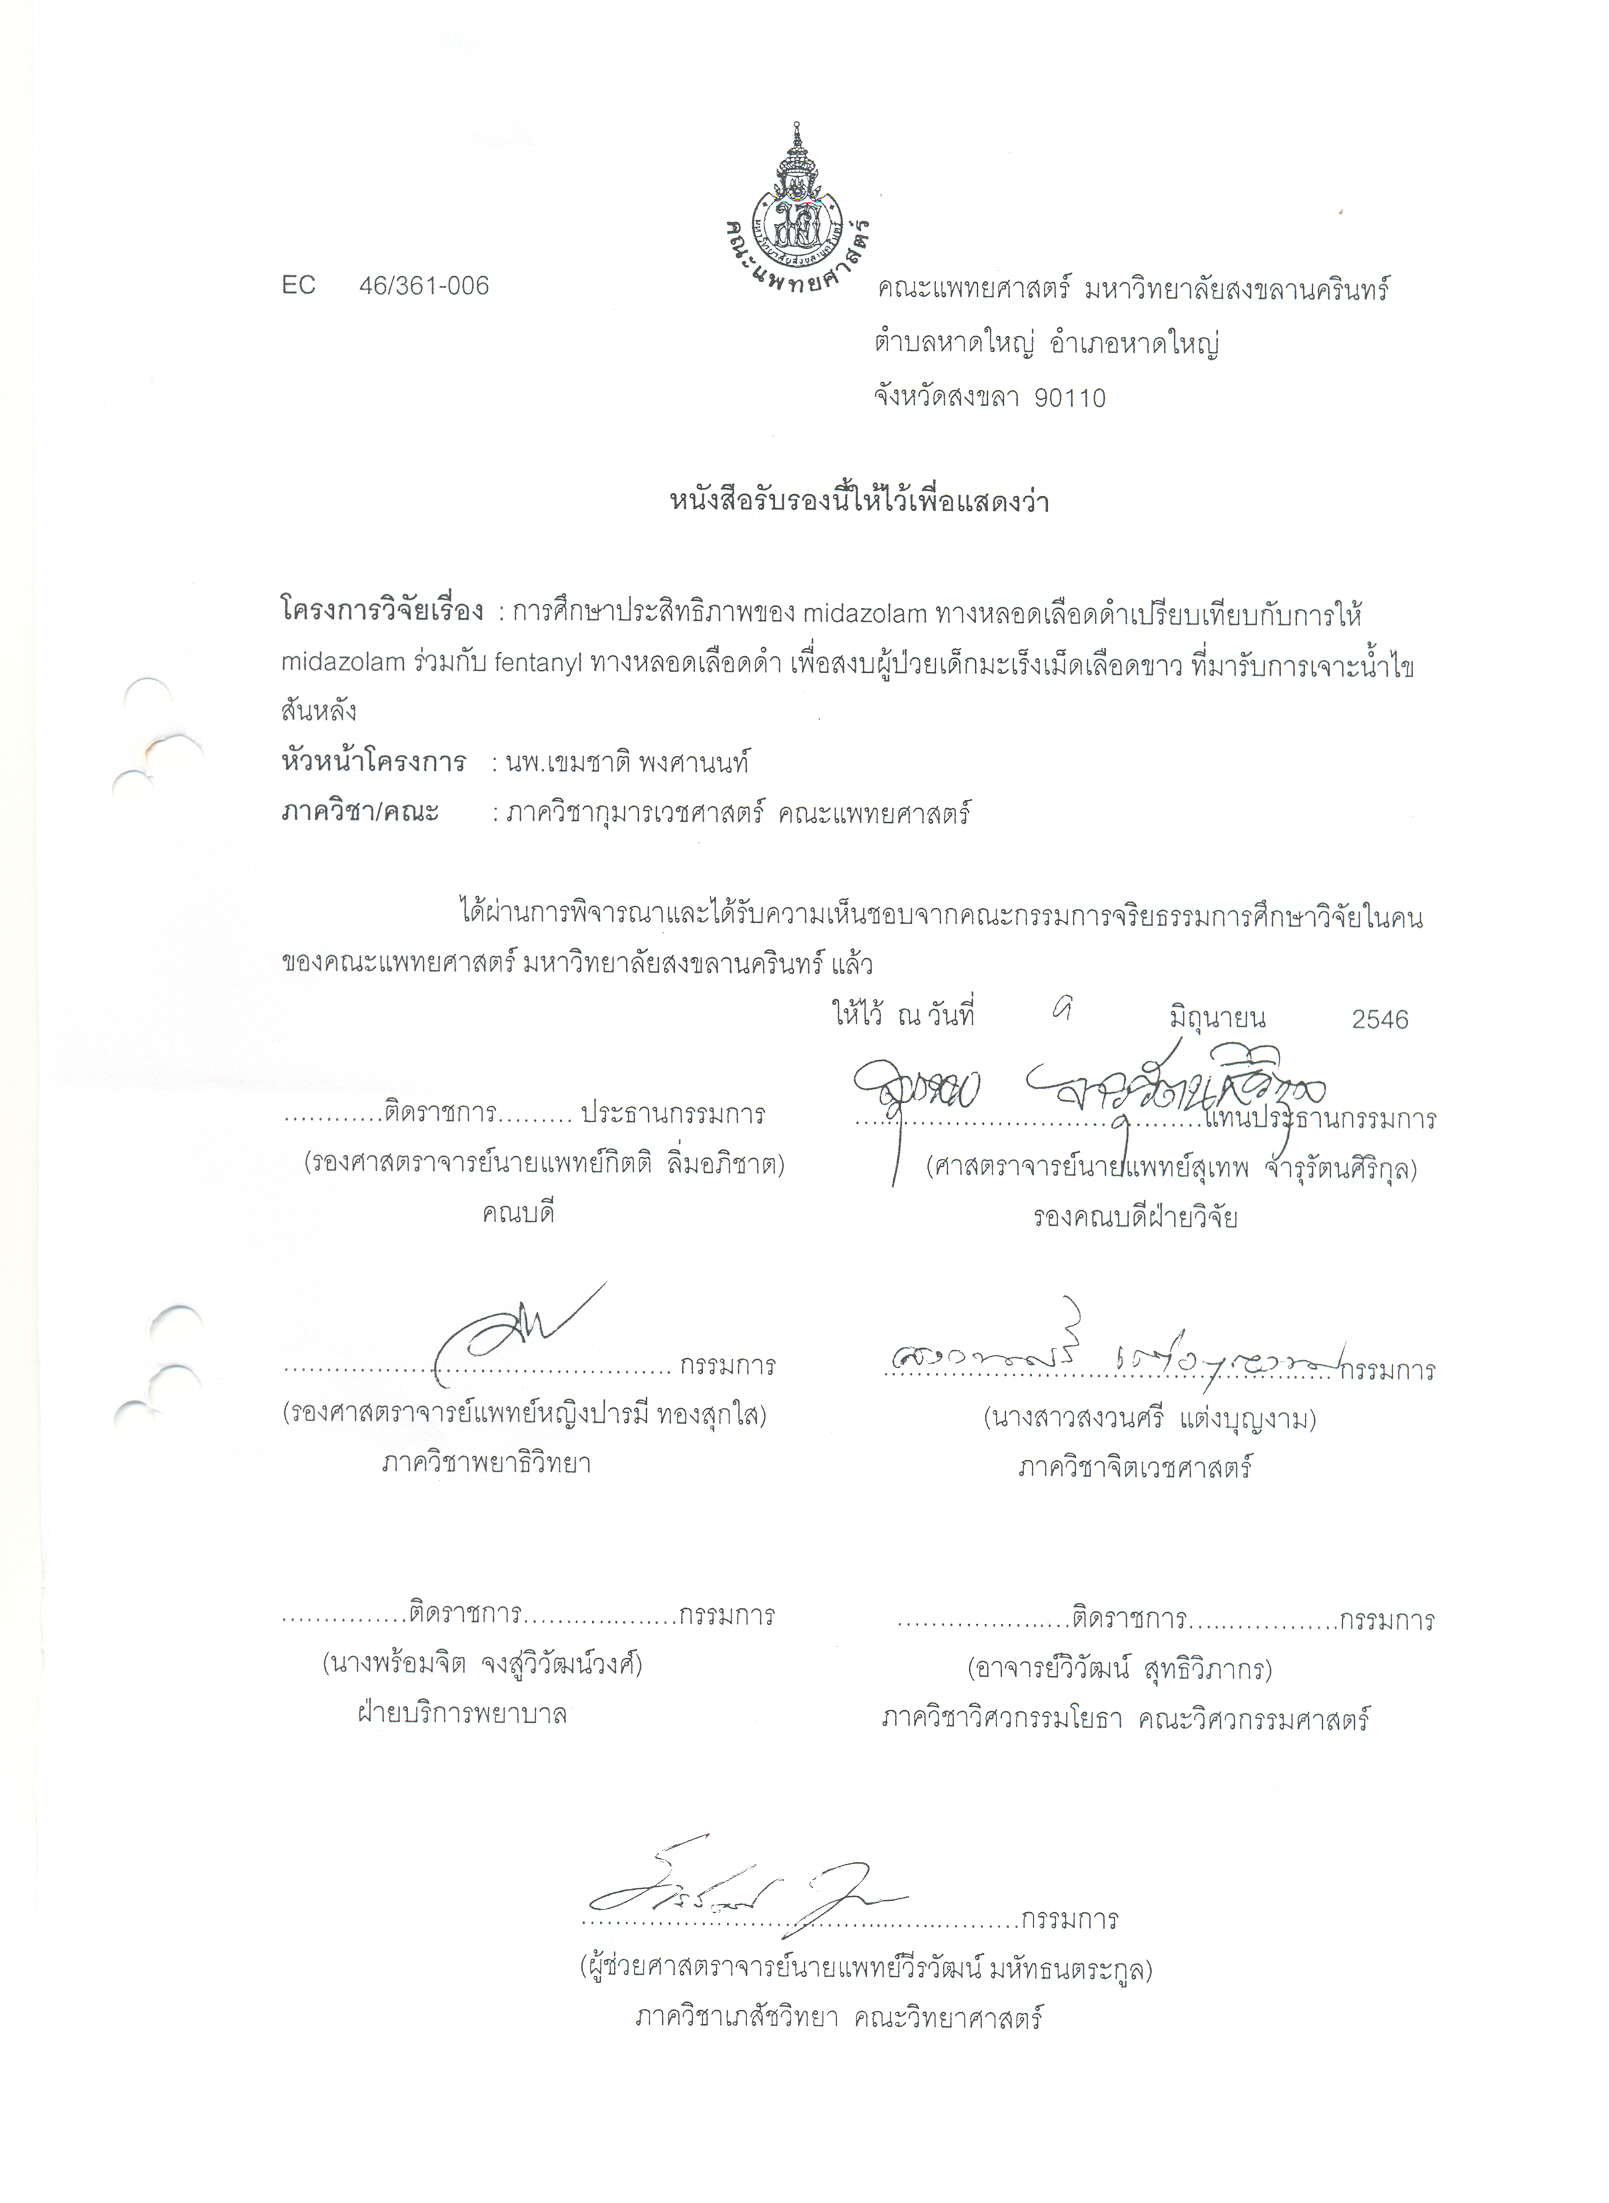 คณะแพทยศาสตร์
มหาวิทยาลัยสงขลานครินทร์
EC 46/361-006
คณะแพทยศาสตร์ มหาวิทยาลัยสงขลานครินทร์
ตำบลหาดใหญ่ อำเภอหาดใหญ่
จังหวัดสงขลา 90110
หนังสือรับรองนี้ให้ไว้เพื่อแสดงว่า
โครงการวิจัยเรื่อง : การศึกษาประสิทธิภาพของ midazolam ทางหลอดเลือดดำเปรียบเทียบกับการให้
midazolam ร่วมกับ fentanyl ทางหลอดเลือดดำ เพื่อสงบผู้ป่วยเด็กมะเร็งเม็ดเลือดขาว ที่มารับการเจาะน้ำไข
สันหลัง
หัวหน้าโครงการ : นพ.เขมชาติ พงศานนท์
ภาควิชา/คณะ : ภาควิชากุมารเวชศาสตร์ คณะแพทยศาสตร์
ได้ผ่านการพิจารณาและได้รับความเห็นชอบจากคณะกรรมการจริยธรรมการศึกษาวิจัยในคน
ของคณะแพทยศาสตร์ มหาวิทยาลัยสงขลานครินทร์ แล้ว
ให้ไว้ ณ วันที่ มิถุนายน 2546
............ติดราชการ......... ประธานกรรมการ
..........................................แทนประธานกรรมการ
(รองศาสตราจารย์นายแพทย์กิตติ ลิ่มอภิชาต)
(ศาสตราจารย์นายแพทย์สุเทพ จารุรัตนศิริกุล)
คณบดี
รองคณบดีฝ่ายวิจัย
.............................................. กรรมการ
......................................................กรรมการ
(รองศาสตราจารย์แพทย์หญิงปารมี ทองสุกใส)
(นางสาวสงวนศรี แต่งบุญงาม)
ภาควิชาพยาธิวิทยา
ภาควิชาจิตเวชศาสตร์
...............ติดราชการ...................กรรมการ
.....................ติดราชการ..................กรรมการ
(นางพร้อมจิต จงสู่วิวัฒน์วงศ์)
(อาจารย์วิวัฒน์ สุทธิวิภากร)
ฝ่ายบริการพยาบาล
ภาควิชาวิศวกรรมโยธา คณะวิศวกรรมศาสตร์
.....................................................กรรมการ
(ผู้ช่วยศาสตราจารย์นายแพทย์วีรวัฒน์ มหัทธนตระกูล)
ภาควิชาเภสัชวิทยา คณะวิทยาศาสตร์